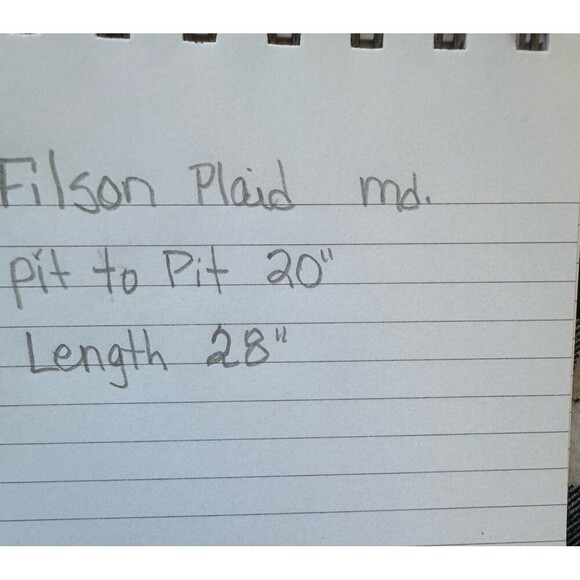 Filson Plaid md.
pit to Pit 20"
Length 28"